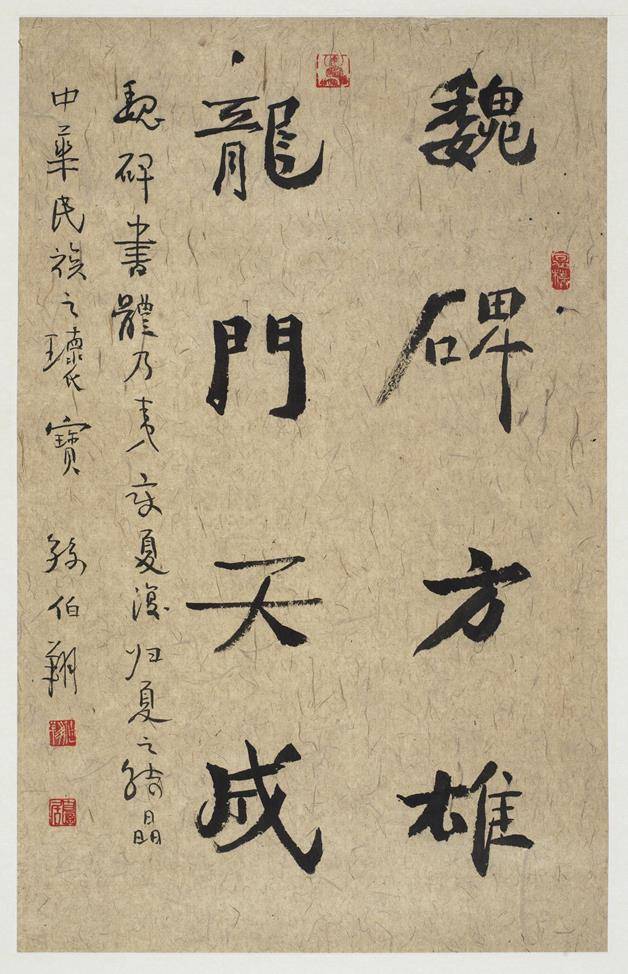 魏碑方雄
龍門天成
魏碑書體乃夷夏復归夏之結晶
中華民族之瓌寶 孫伯翔